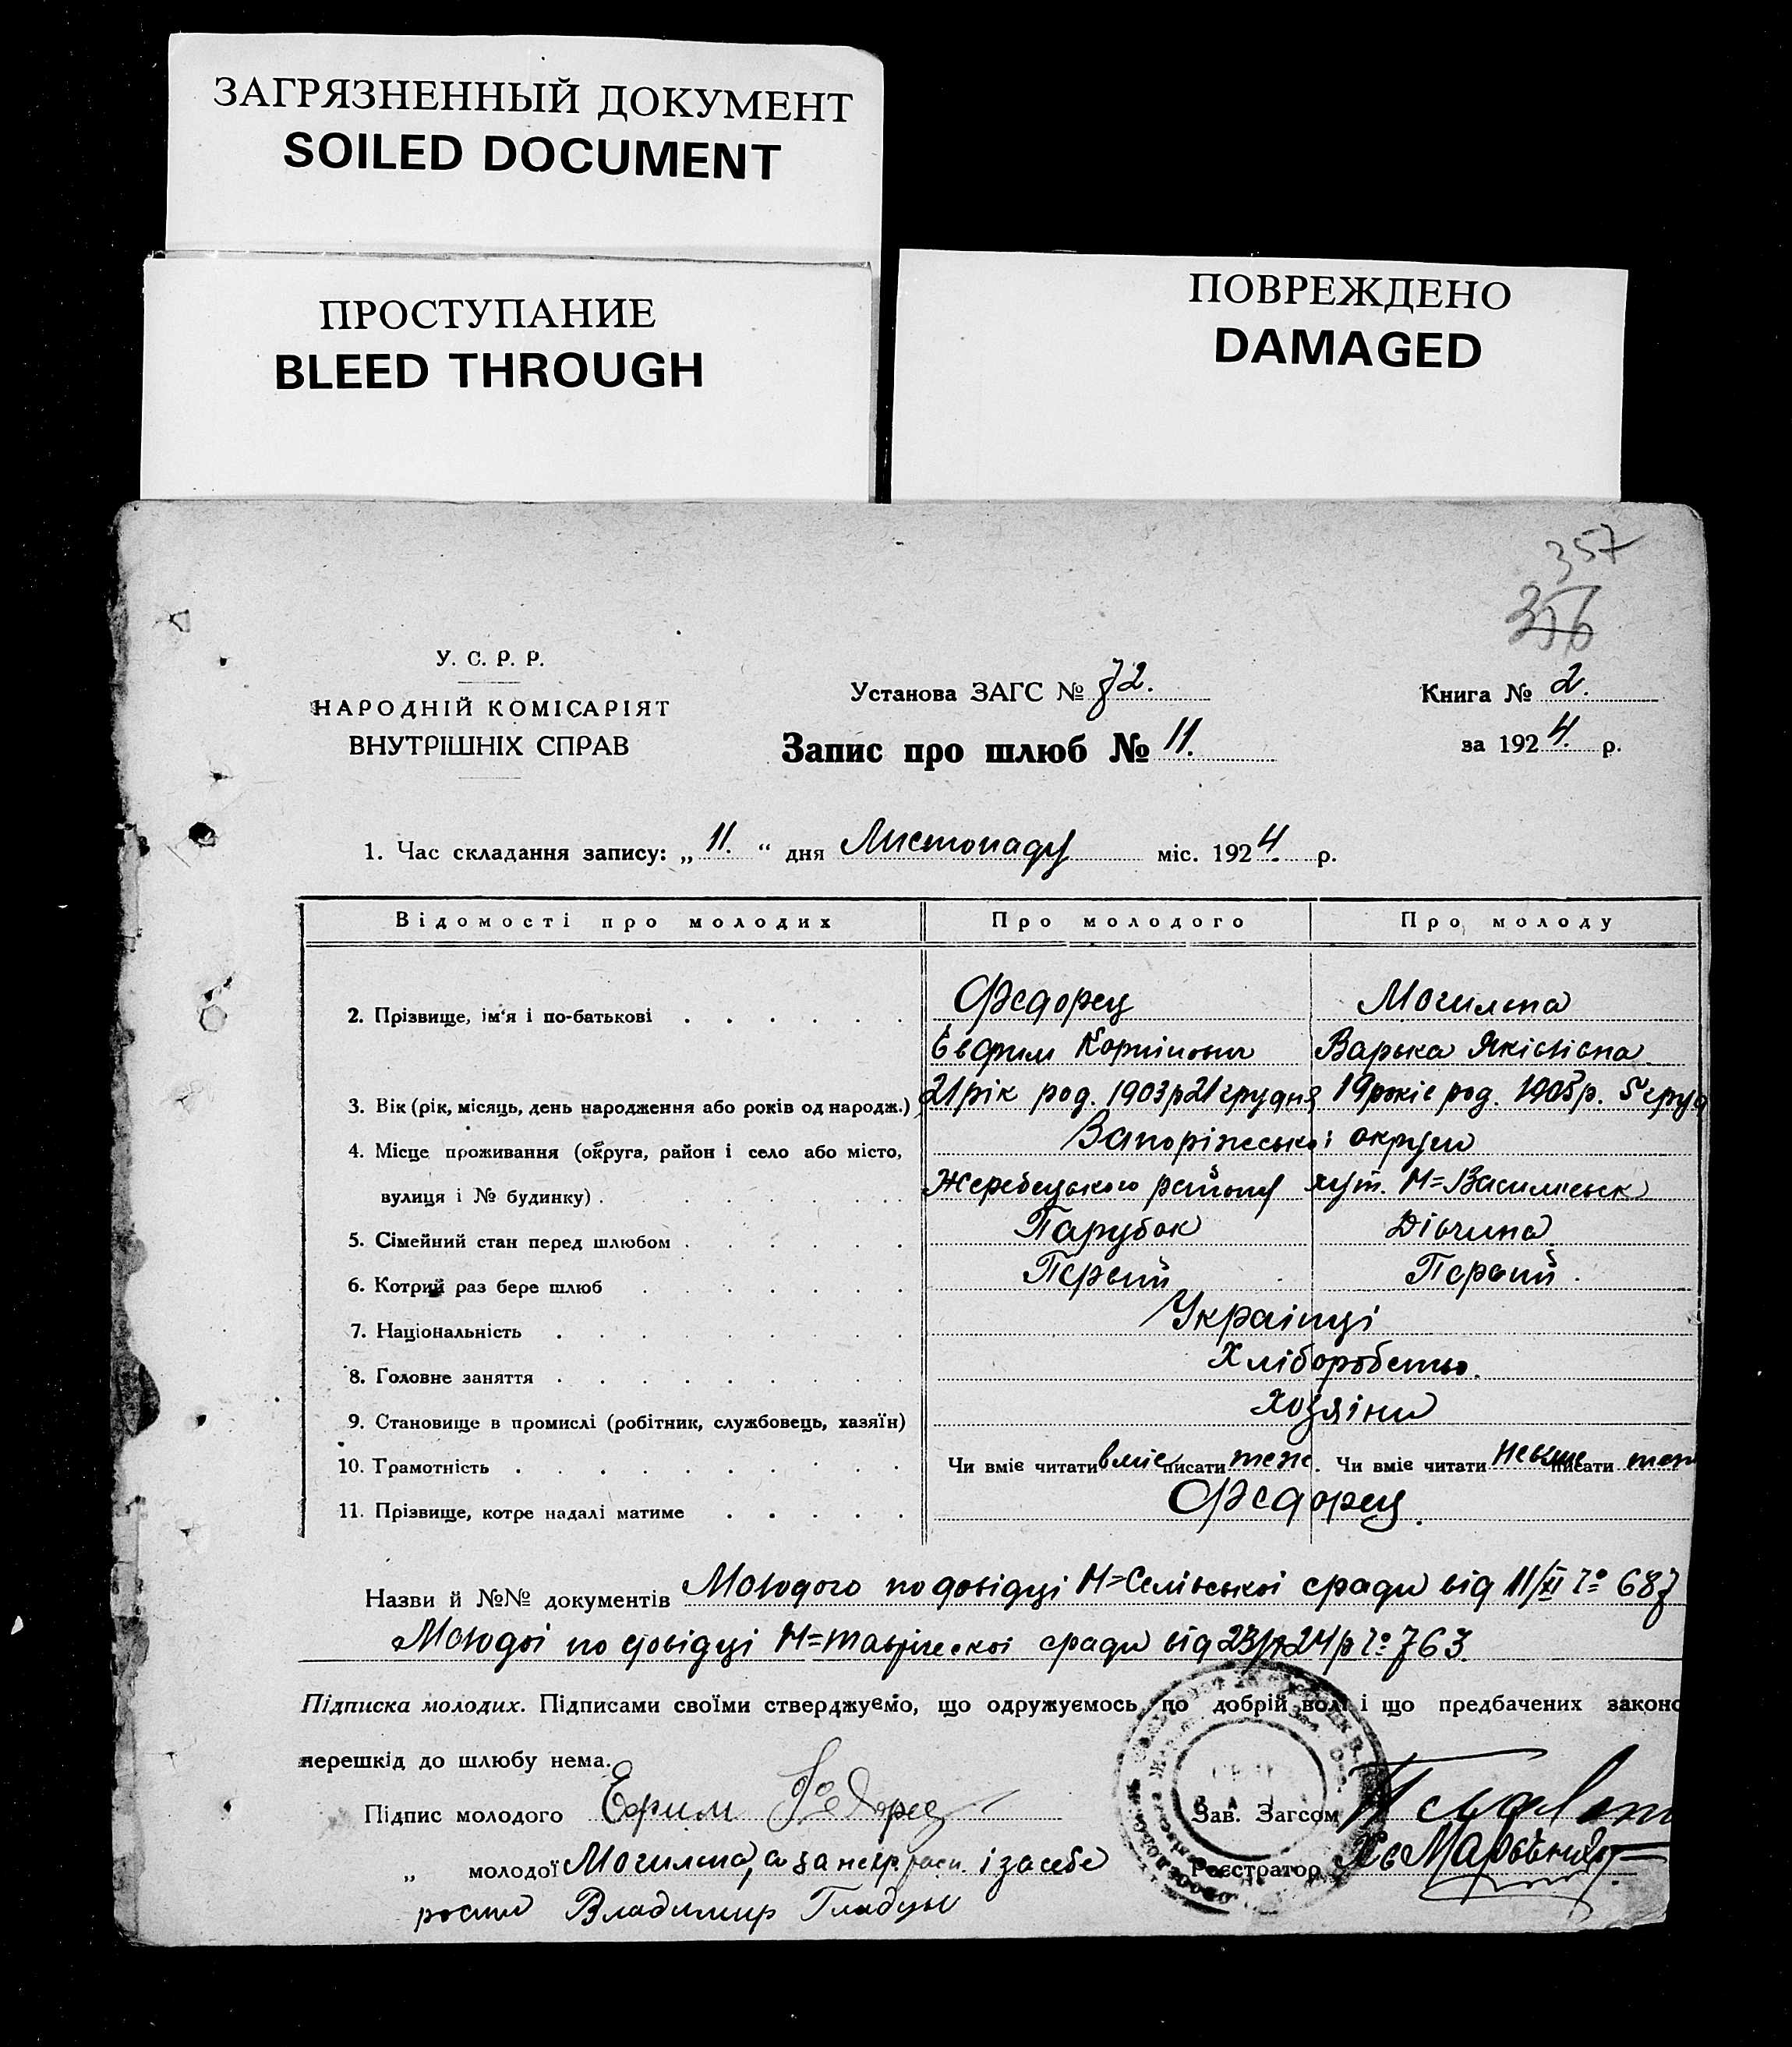 ЗАГРЯЗНЕННЫЙ ДОКУМЕНТ
SOILED DOCUMENT
ПРОСТУПАНИЕ
BLEED THROUGH
ПОВРЕЖДЕНО
DAMAGED
357
356
У. С. Р. Р.
НАРОДНІЙ КОМІСАРІЯТ
ВНУТРІШНІХ СПРАВ
Установа ЗАГС № 72.
Запис про шлюб № 11.
Книга № 2.
за 1924. р.
1. Час складання запису: „ 11. “ дня Листопаду міс. 1924. р.
Відомості про молодих Про молодого Про молоду
2. Прізвище, ім'я і по-батькові Федорец Могильна
Евфим Карпінович Варька
3. Вік (рік, місяць, день народження або років од народж.) 21 рік род. 1903 р 21 грудня 19 років род. 1905 р. 5 груд
4. Місце проживання (округа, район і село або місто, Запоріжської округи
вулиця і № будинку) Жеребецького району хут. М=Васильевк
5. Сімейний стан перед шлюбом Парубок Дівчина
6. Котрий раз бере шлюб Первий Первий.
7. Національність Українці
8. Головне заняття Хліборобство.
9. Становище в промислі (робітник, службовець, хазяїн) Хозяіни
10. Грамотність Чи вміє читати вміє писати теж. Чи вміє читати невміє писати теж
11. Прізвище, котре надалі матиме Федорец.
Назви й №№ документів Молодого по довідці М= сради від 11/XI № 687
Молодоі по довідці М= сради від 24 р № 763.
Підписка молодих. Підписами своїми стверджуємо, що одружуємось по добрій волі і що предбачених законо
перешкід до шлюбу нема.
Підпис молодого Ефим Федорец Зав. Загсом
„ молодої Могильна, а за і за себе Реєстратор
Владимир